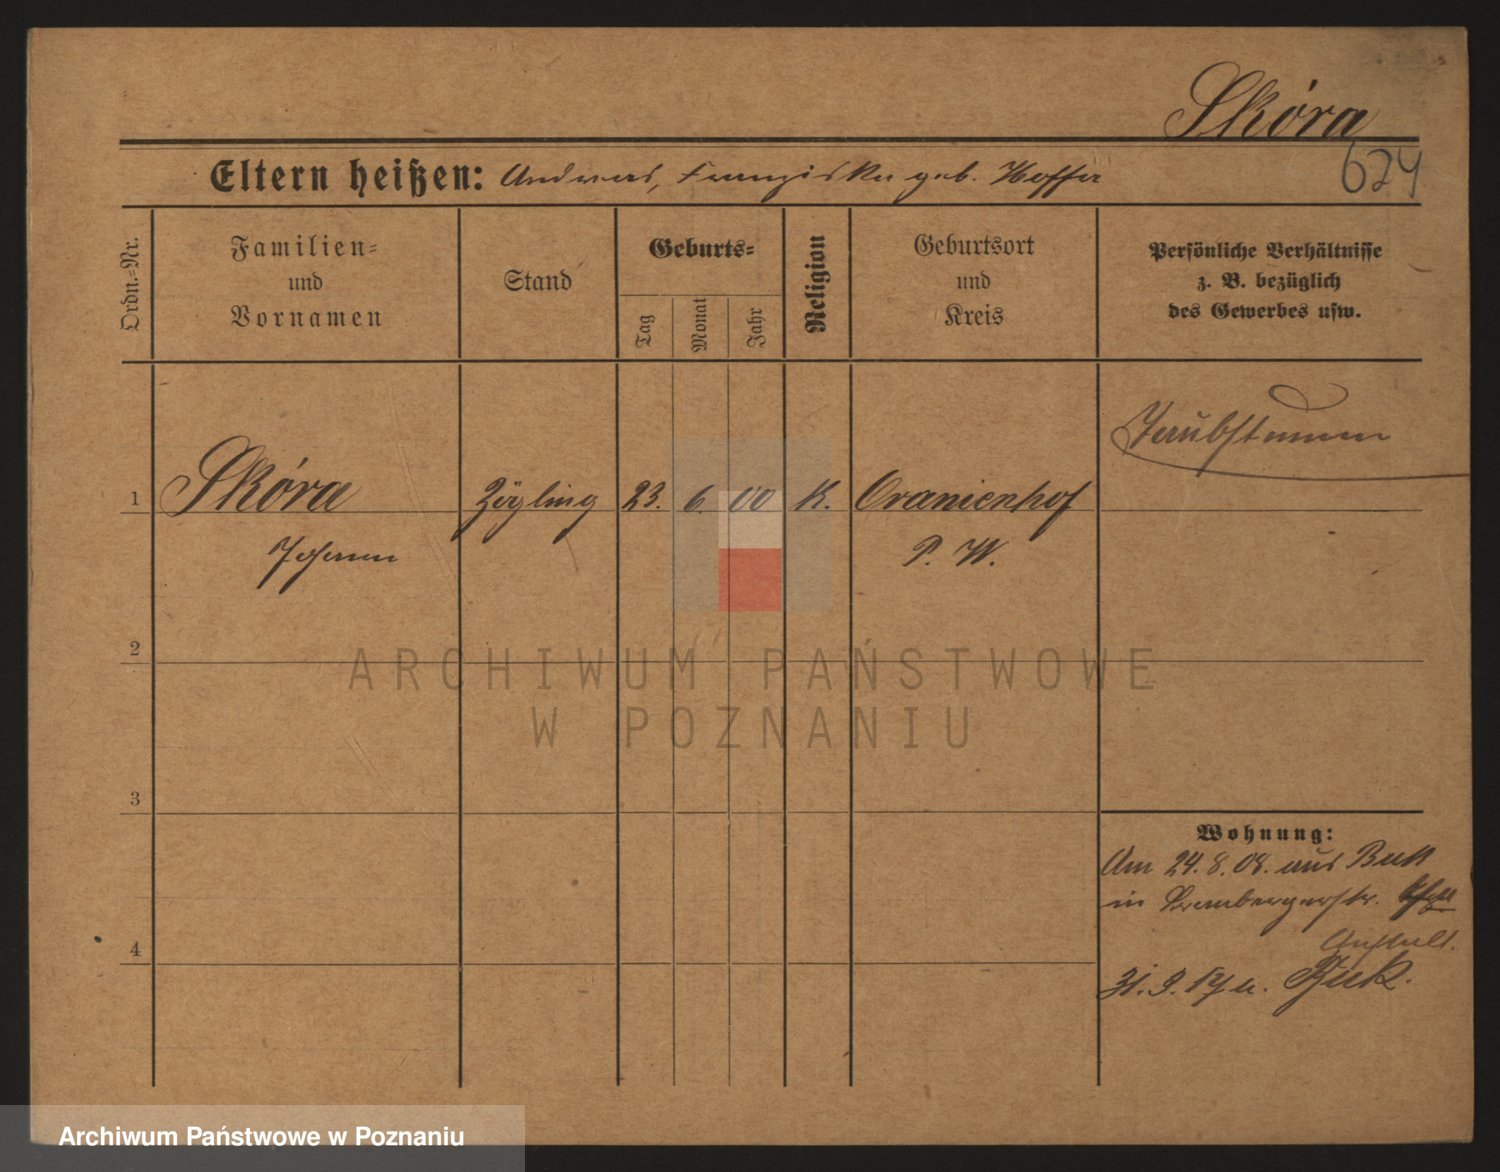 Skóra
624
Eltern heißen: Andreas, Franziska geb. Hoffa
Ordn.=Nr.
Familien=
und
Vornamen
Stand
Geburts=
Tag
Monat
Jahr
Religion
Geburtsort
und
Kreis
Persönliche Verhältnisse
z. B. bezüglich
des Gewerbes usw.
Taubstumm
1 Skóra Zögling 23. 6. 00 K. Oranienhof
Johann P. W.
2
ARCHIWUM PAŃSTWOWE
W POZNANIU
3
Wohnung:
Am 24.8.08. aus Buk
in Brombergerstr.
Anstalt.
4
31. 3. 17 n. Buk.
Archiwum Państwowe w Poznaniu